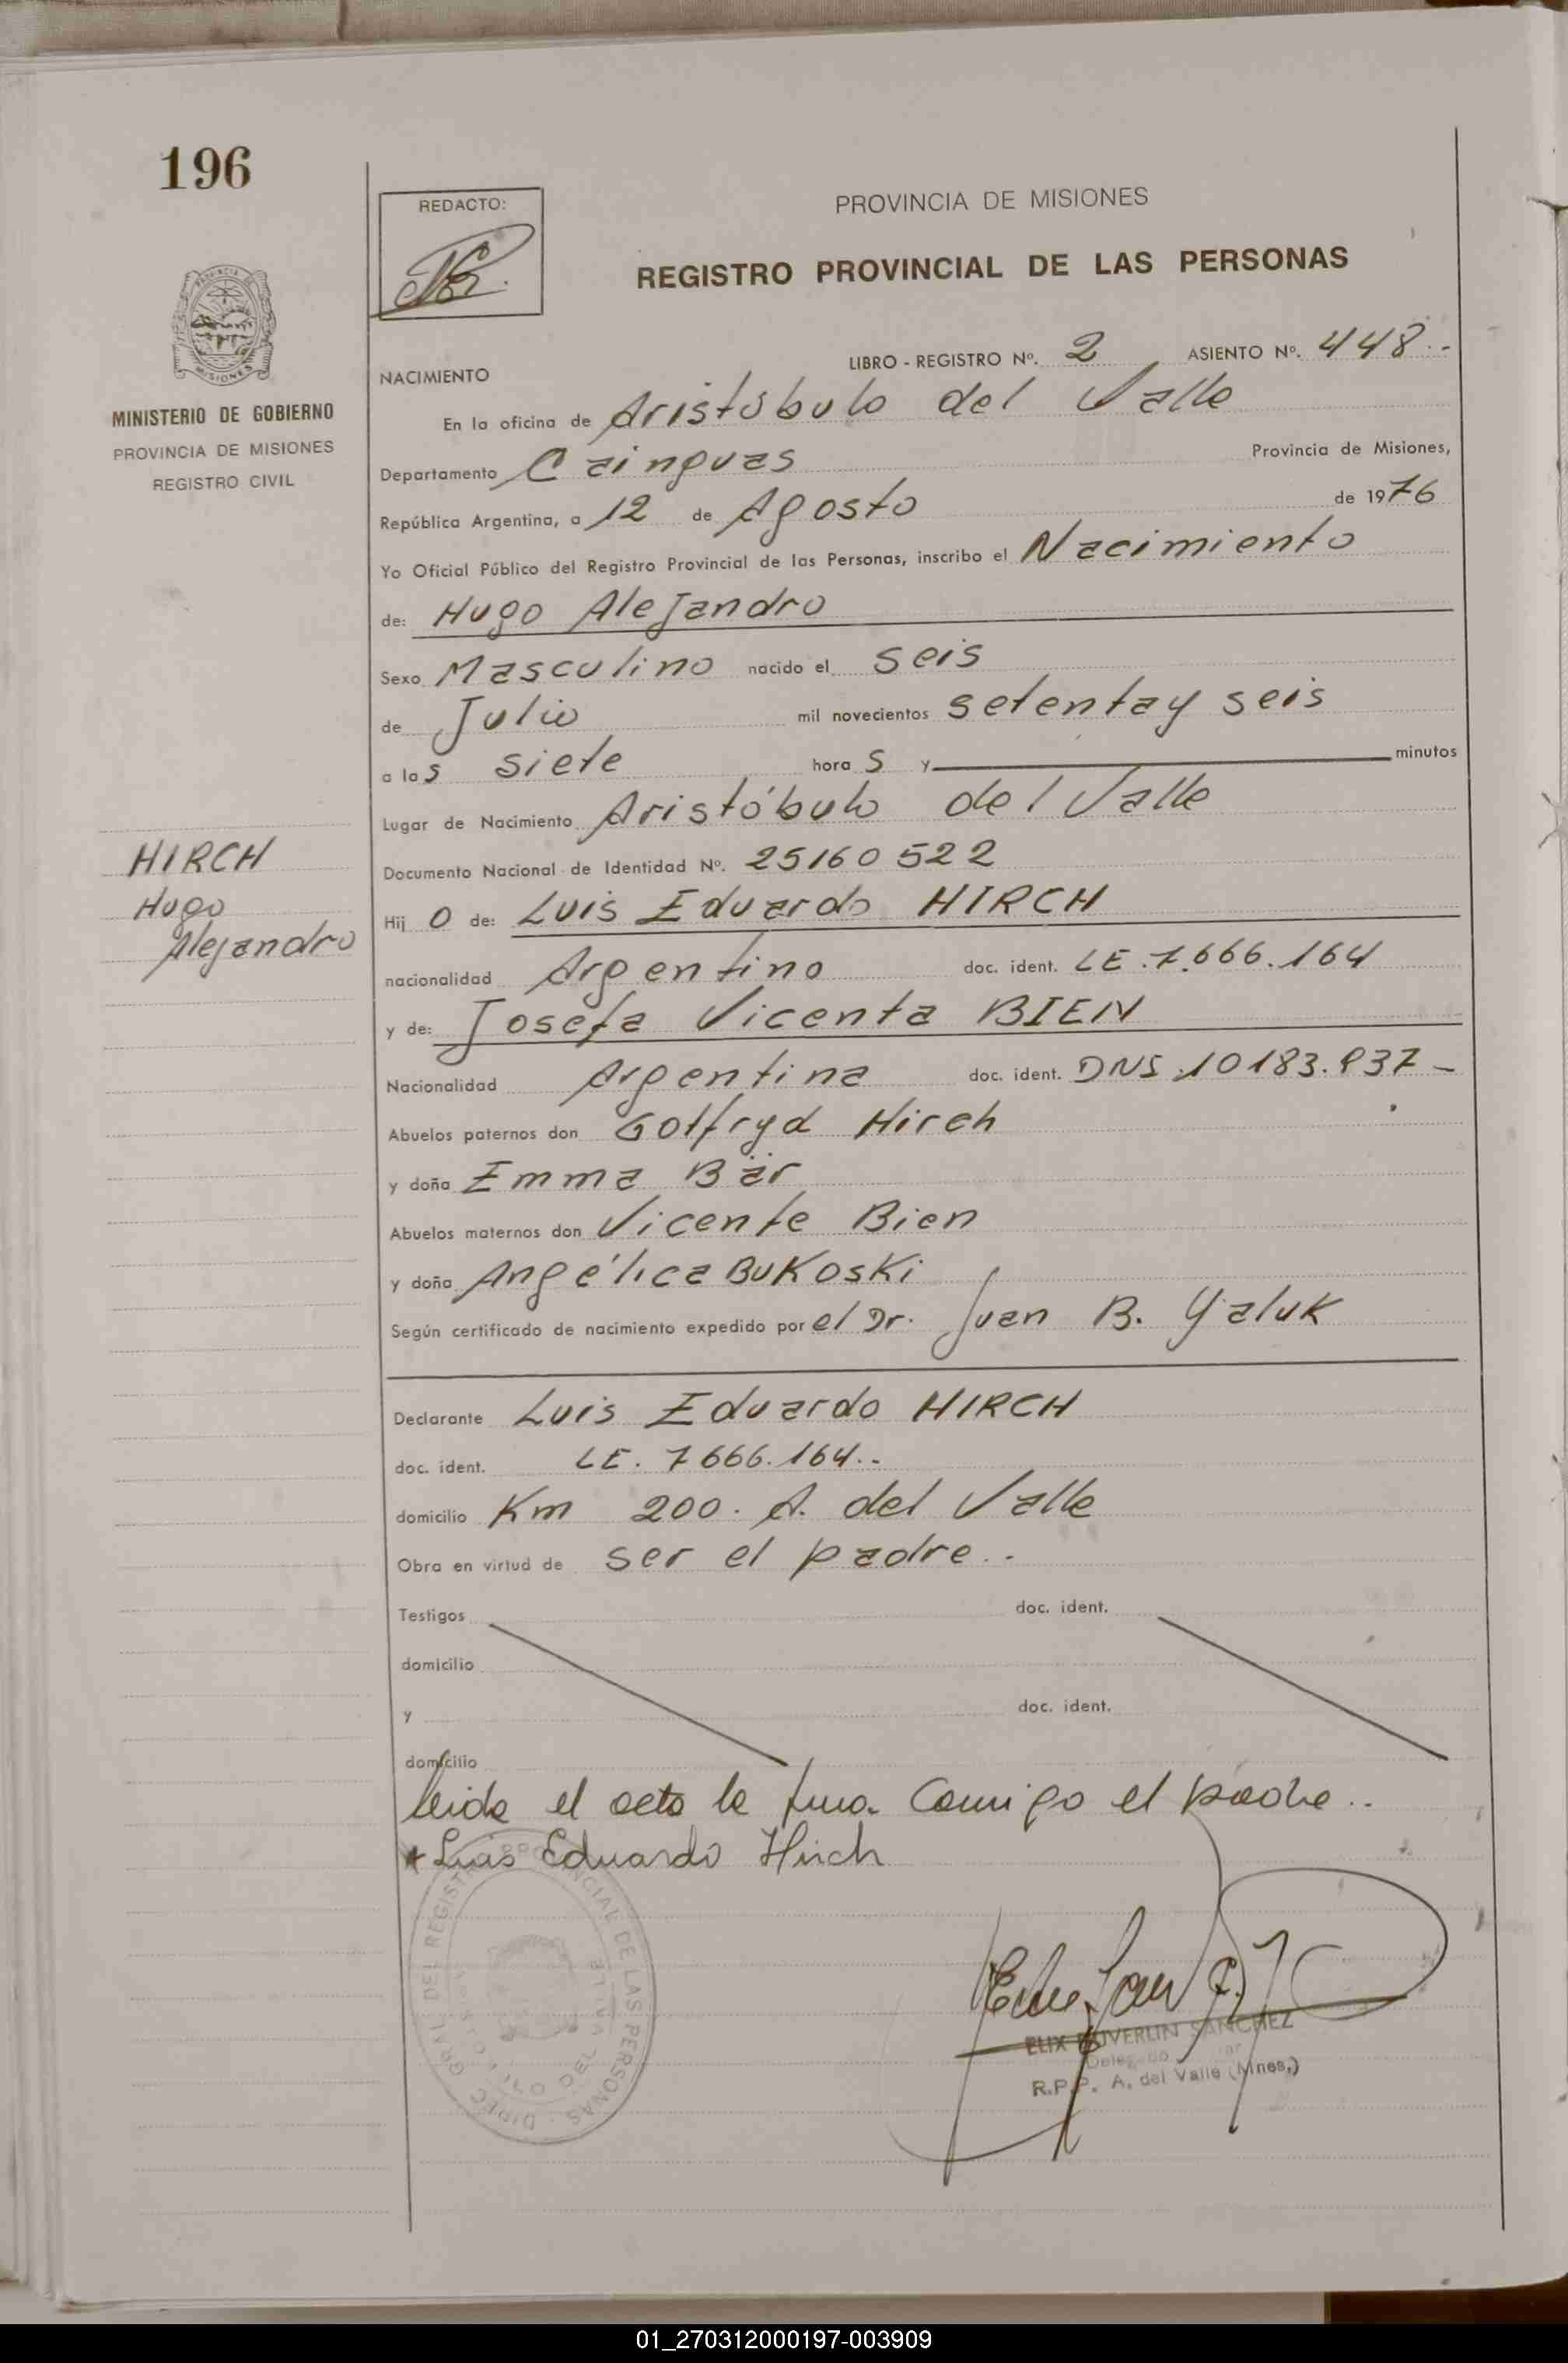 196
REDACTO:
PROVINCIA DE MISIONES
REGISTRO PROVINCIAL DE LAS PERSONAS
PROVINCIA
MISIONES
MINISTERIO DE GOBIERNO
PROVINCIA DE MISIONES
REGISTRO CIVIL
LIBRO - REGISTRO Nº. 2 ASIENTO Nº. 448.-
NACIMIENTO
En la oficina de Aristóbulo del Valle
Departamento Cainguas Provincia de Misiones,
República Argentina, a 12 de Agosto de 1976
Yo Oficial Público del Registro Provincial de las Personas, inscribo el Nacimiento
de: Hugo Alejandro
Sexo Masculino nacido el seis
de Julio mil novecientos setenta y seis
a las siete horas y minutos
Lugar de Nacimiento Aristóbulo del Valle
Documento Nacional de Identidad Nº. 25160522
HIRCH
Hugo
Alejandro
Hijo de: Luis Eduardo HIRCH
nacionalidad Argentino doc. ident. LE.7.666.164
y de: Josefa Vicenta BIEN
Nacionalidad Argentina doc. ident. 10183.837-
Abuelos paternos don Gotfryd Hirch
y doña Emma Bär
Abuelos maternos don Vicente Bien
y doña Angélica BuKosKi
Según certificado de nacimiento expedido por el Dr. Juan B. Yaluk
Declarante Luis Eduardo HIRCH
doc. ident. LE. 7666.164.-
domicilio Km 200. A. del Valle
Obra en virtud de ser el padre.-
Testigos doc. ident.
domicilio
y doc. ident.
domicilio
leida el acta la firma conmigo el padre..
Luis Eduardo Hirch
DIREC. GRAL. DEL REGISTRO PROVINCIAL DE LAS PERSONAS
ARISTOBULO DEL VALLE
SANCHEZ
R.P.P. A. del Valle (Mnes.)
01_270312000197-003909